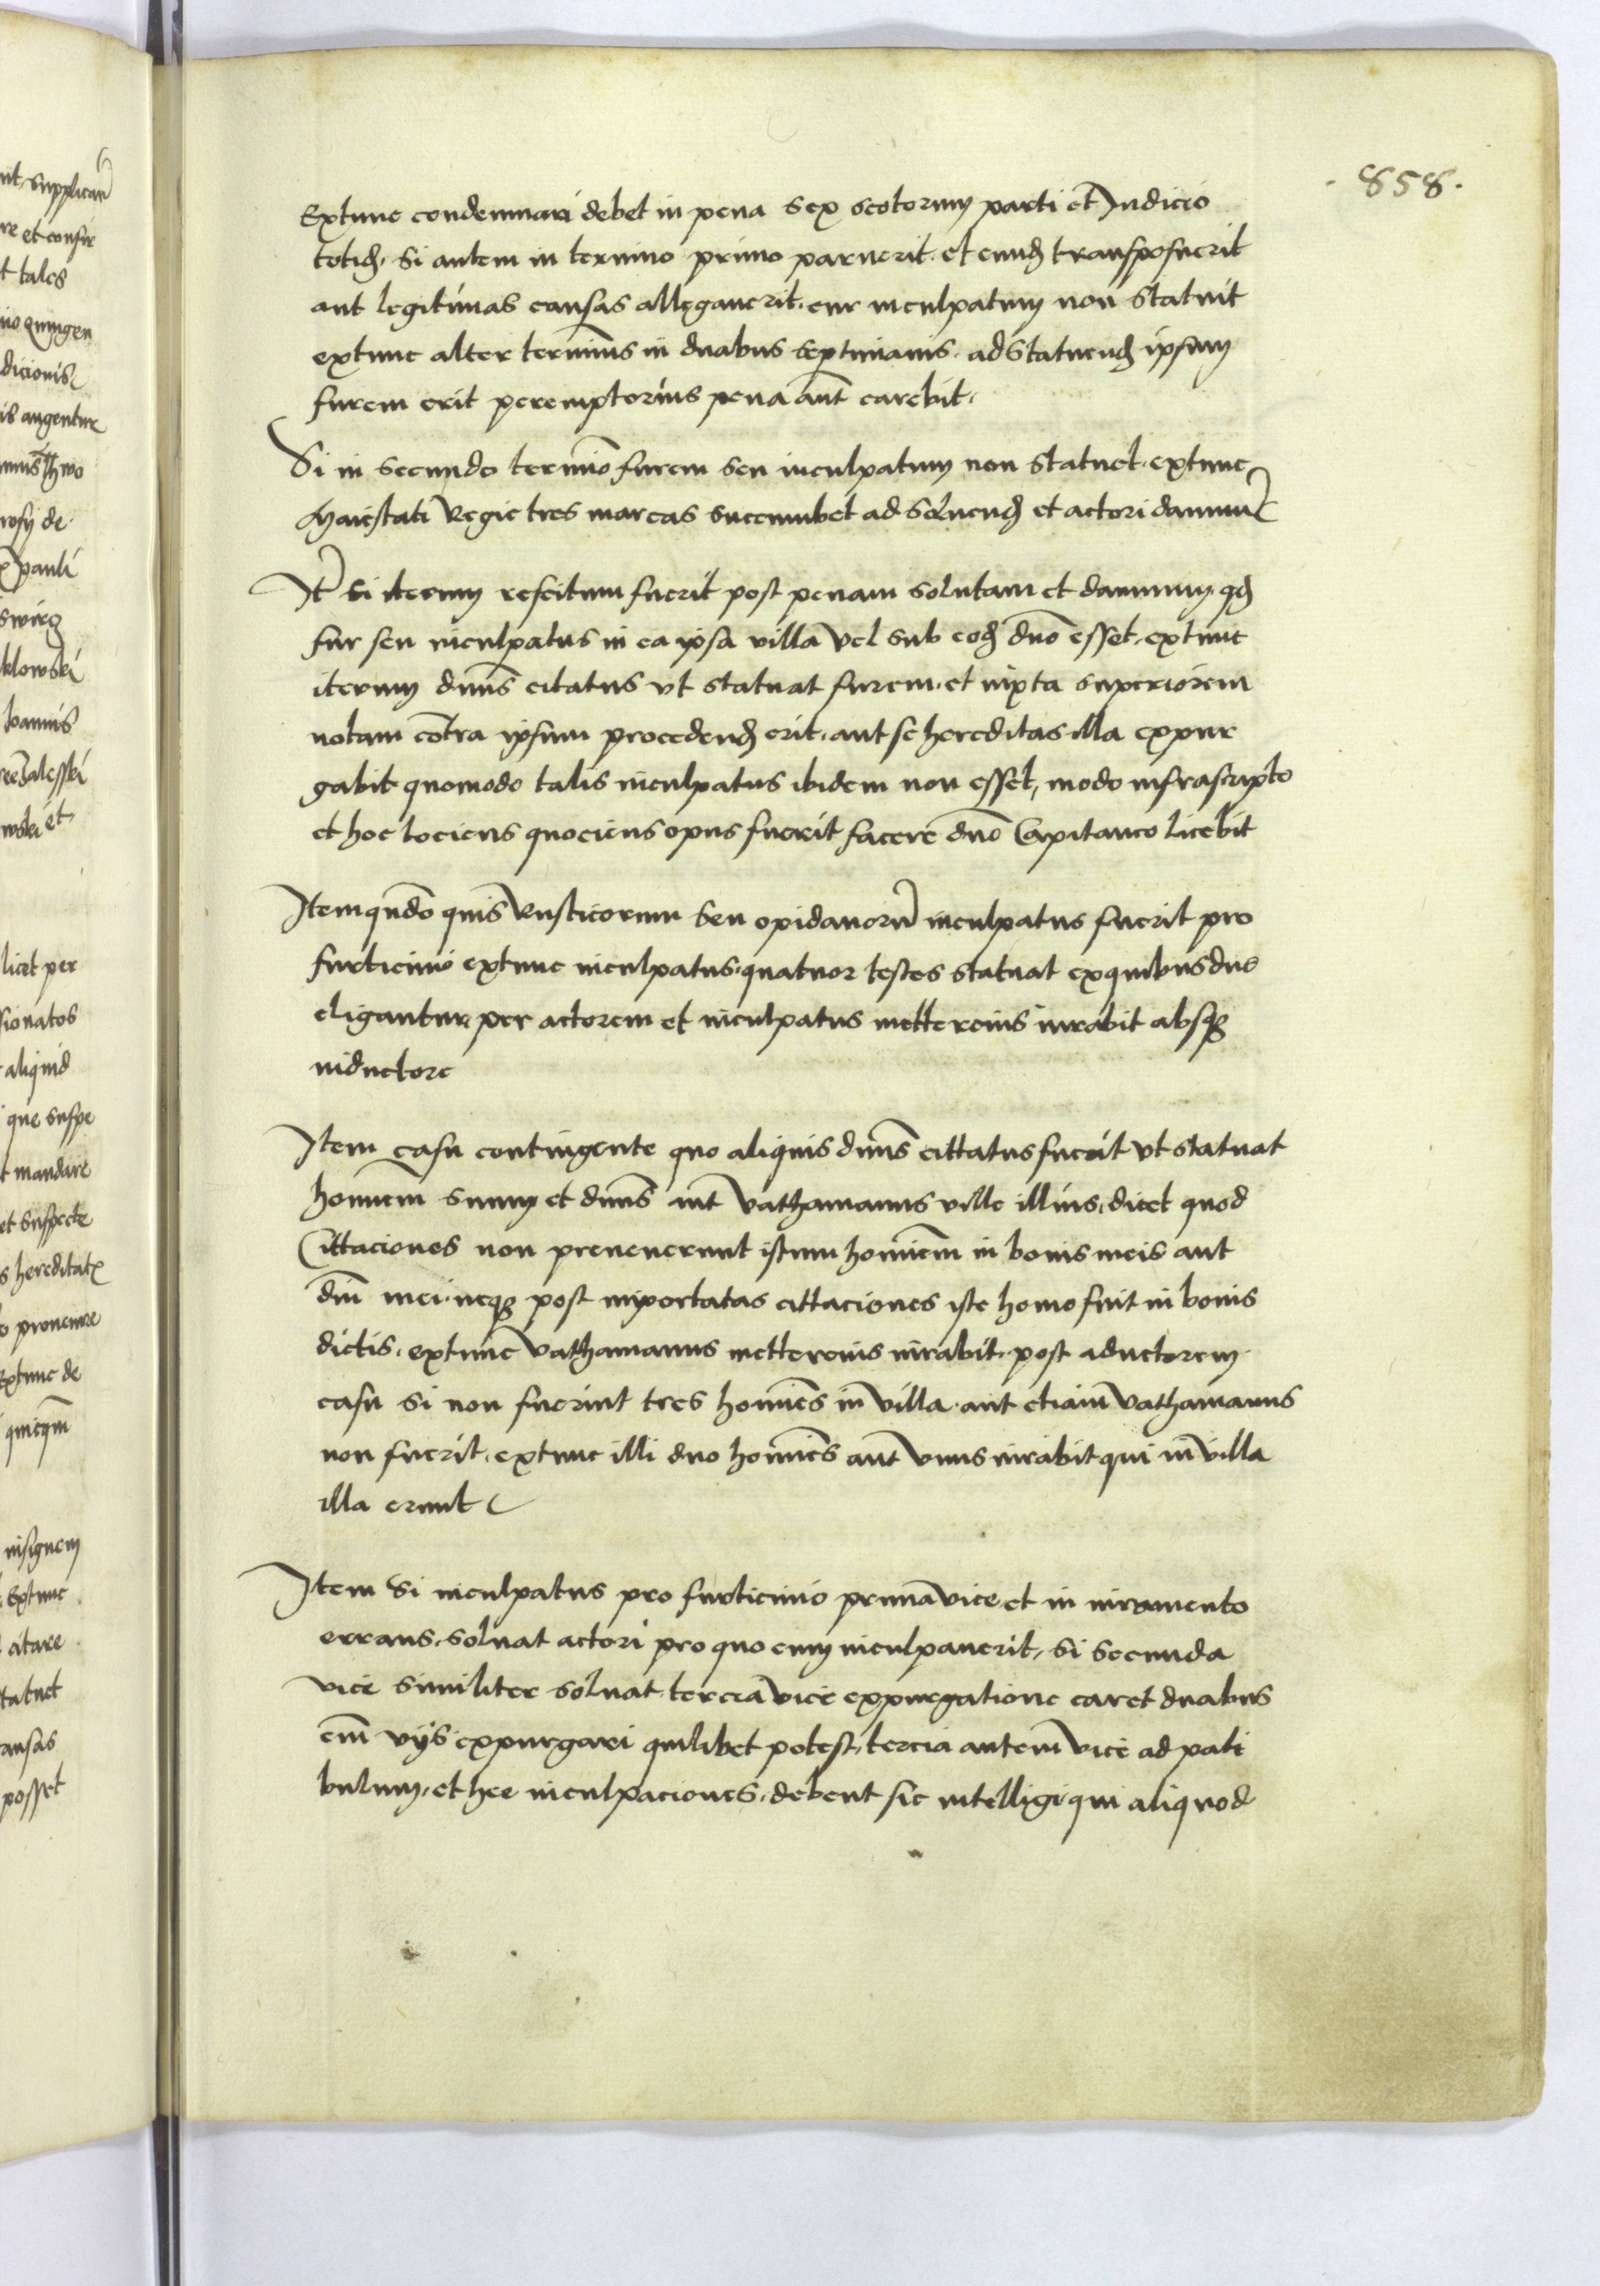 .858.
Extunc condemnari debet in pena sex scotorum parti et Iudicio
totiđ. Si autem in termino primo paruerit. et eundē transposuerit
aut legitimas causas allegauerit. cur inculpatum non statuit
extunc alter terminus in duabus septimanis. ad statuenđ ipsum
furem erit peremptorius pena aut carebit.
Si in secundo termīo furem seu inculpatum non statuet. extunc
Maiestati Regie tres marcas succumbet ad soluenđ et actori damnū
It̄ Si iterum rescitum fuerit post penam solutam et damnum qđ
fur seu inculpatus in ea ipsa villa vel sub eođ dn̄o esset. extunc
iterum dn̄us citatus vt statuat furem. et iuxta superiorem
notam cōtra ipsum procedenđ erit. aut se hereditas illa expur
gabit quomodo talis inculpatus ibidem non esset, modo infrascripto
et hoc tociens quociens opus fuerit facere dn̄o Capitaneo licebit
Item qn̄do quis Rusticorum seu opidanorū inculpatus fuerit pro
furticinio extunc inculpatus. quatuor testes statuat ex quibus duo
eligantur per actorem et inculpatus mettercius iurabit absq3
inductore
Item casu contingente quo aliquis dn̄us cittatus fuerit vt statuat
hominem suum et dn̄us aut vathamanus ville illius. dicet quod
Cittaciones non preuenerunt istum homīem in bonis meis aut
dn̄i mei. neq3 post importatas cittaciones iste homo fuit in bonis
dictis. extunc vathamanus mettercius iurabit. post aductorem
casu si non fuerint tres homīes in villa. aut etiam vathamanus
non fuerit. extunc illi duo homīes aut vnus iurabit qui in villa
illa erunt
Item Si inculpatus pro furticinio prima vice et in iuramento
errans. soluat actori pro quo eum inculpauerit. Si secunda
vice similiter soluat. tercia vice expurgatione caret duabus
em̄ vijs expurgari quilibet potest. tercia autem vice ad pati
bulum. et hee inculpaciones. debent sic intelligi. qui aliquod